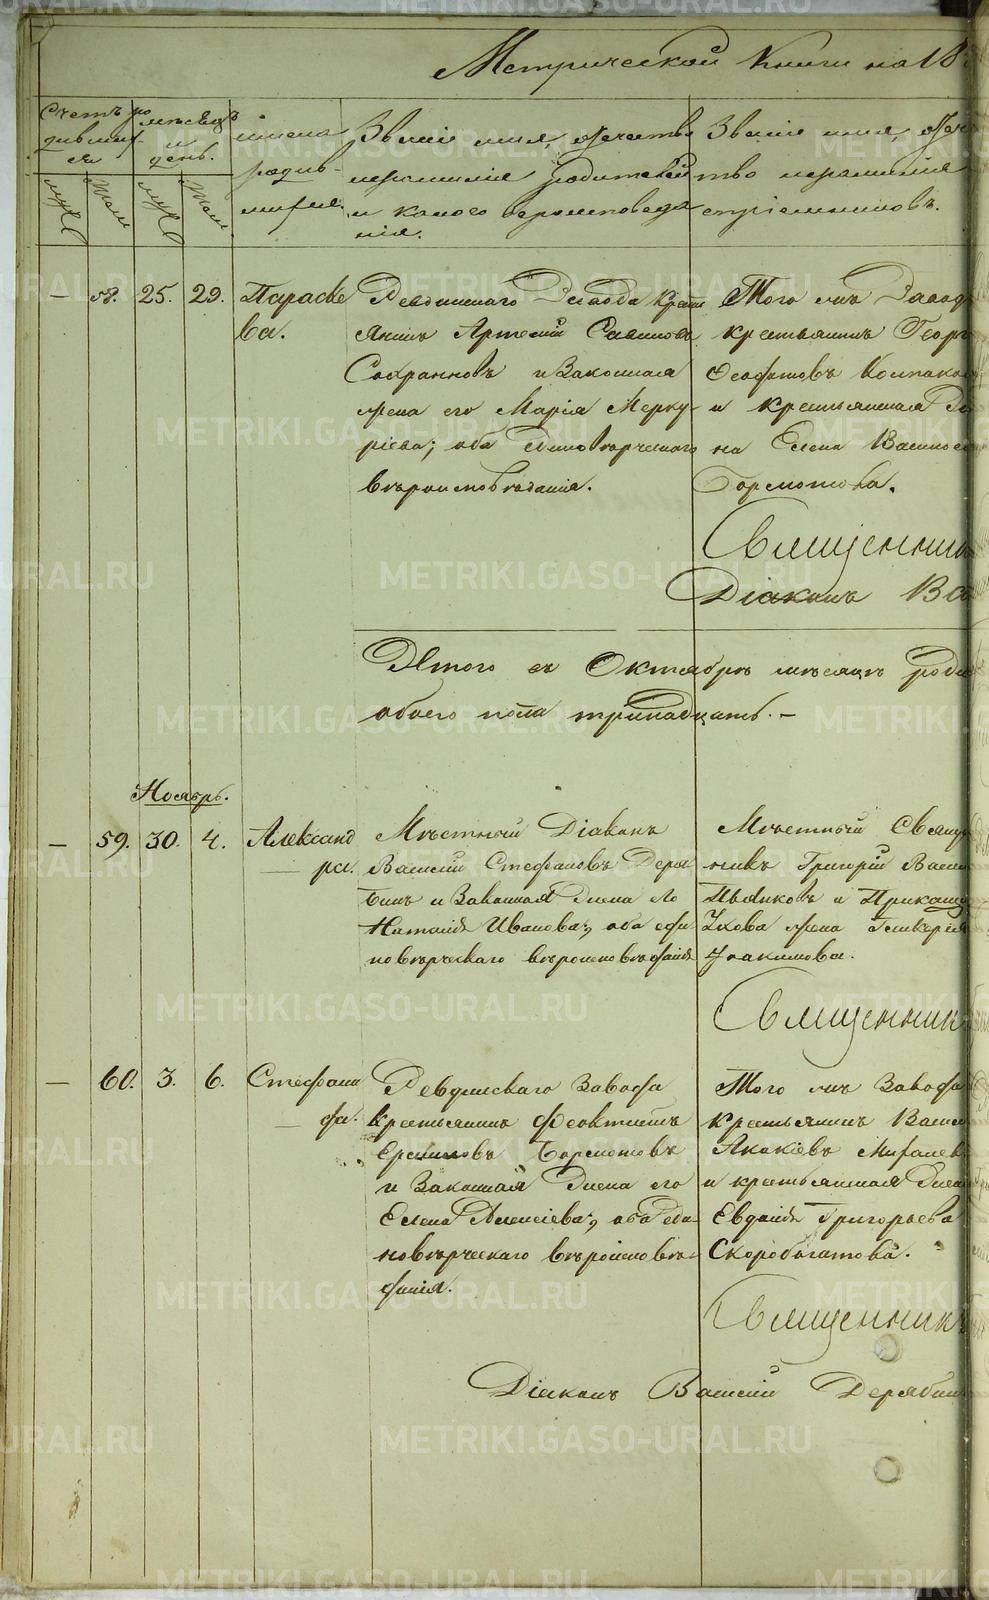 Метрической Книги на 18
Счетъ родившихся
мѣсяцъ и день.
имена родившихся.
Званіе имя, отечество
и какого вѣроисповеда
нія.
Званіе имя, отече
ство
воспріемниковъ.
муж
жен
муж
жен.
— 58. 25. 29. Параске
ва.
Ревдинскаго Завода кресть
янинъ Артемій Савиновъ
Сохранновъ и Законная
жена его Марія Мерку-
ріева; оба единовѣрческаго
вѣроисповѣданія.
Того жъ Завод
крестьянинъ Георг
Феофитовъ Колпако
и крестьянская Же
на Елена Василье
Бормотова.
Священник
Діаконъ Ва
Итого въ Октябрѣ мѣсяцѣ роди
обоего пола тринадцать. —
Ноябрь.
— 59. 30. 4. Александ
ра.
Мѣстный Діаконъ
Василій Стефановъ Деря
бинъ и Законная Жена его
Наталія Иванова; оба еди
новѣрческаго вѣроисповѣданія
Мѣстный Священ
никъ Григорій Васил
Пьянковъ и Прикащ
Ухова жена Гликерія
Іоакимова.
Священник
— 60. 3. 6. Стефани
да.
Ревдинскаго Завода
крестьянинъ Феоктистъ
Ермиловъ Бормотовъ
и Законная Жена его
Елена Алексіева; оба еди
новѣрческаго вѣроисповѣ
данія.
Того жъ Завода
крестьянинъ Васил
Акакіевъ
и крестьянская Жена
Евдокія Григорьева
Скоробогатова.
Священникъ
Діаконъ Василій Дерябин
METRIKI.GASO-URAL.RU